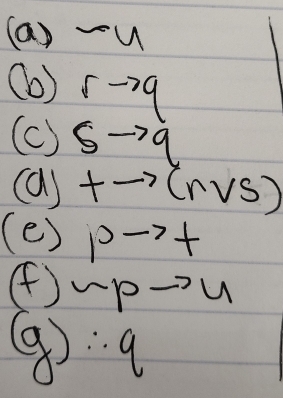 (a) ~u
(b) r→q
(c) s→q
(d) t→(r∨s)
(e) p→t
(f) ~p→u
(g) ∴q